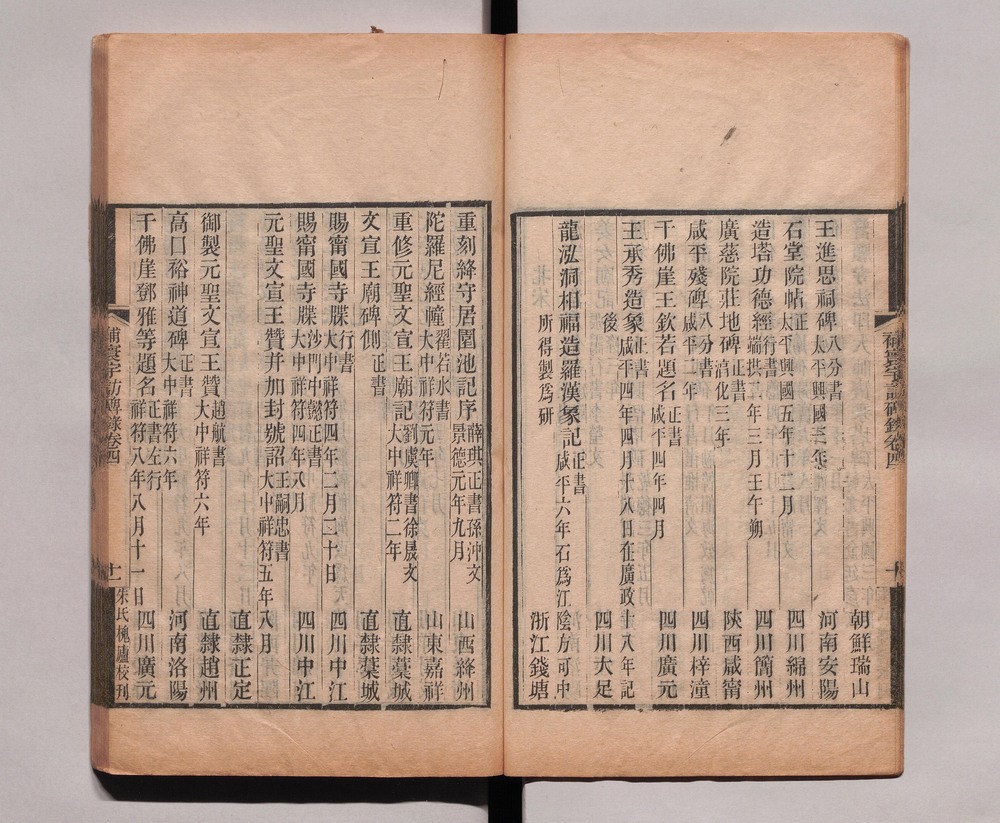 朝鮮瑞山
王進思祠碑八分書太平興國三年 河南安陽
石堂院帖正書太平興國五年十二月 四川綿州
造塔功德經行書端拱二年三月壬午朔 四川簡州
廣慈院莊地碑正書淳化三年 陝西咸甯
咸平殘碑八分書咸平二年 四川梓潼
千佛崖王欽若題名正書咸平四年四月 四川廣元
王承秀造象正書咸平四年四月十八日在廣政十八年記後 四川大足
龍泓洞相福造羅漢象記正書咸平六年石為江陰方可中所得製為硯 浙江錢塘
重刻絳守居園池記序薛琪正書孫沖文景德元年九月 山西絳州
陀羅尼經幢翟若水書大中祥符元年 山東嘉祥
重修元聖文宣王廟記劉虞卿書徐晟文大中祥符二年 直隸藁城
文宣王廟碑側正書 直隸藁城
賜甯國寺牒行書大中祥符四年二月三十日 四川中江
賜甯國寺牒沙門中懿正書大中祥符四年八月 四川中江
元聖文宣王贊并加封號詔王嗣忠書大中祥符五年八月
直隸正定
御製元聖文宣王贊趙航書大中祥符六年 直隸趙州
高口裕神道碑正書大中祥符六年 河南洛陽
千佛崖鄧雅等題名正書左行祥符八年八月十一日 四川廣元
補寰宇訪碑錄卷四 十一 朱氏槐廬校刊